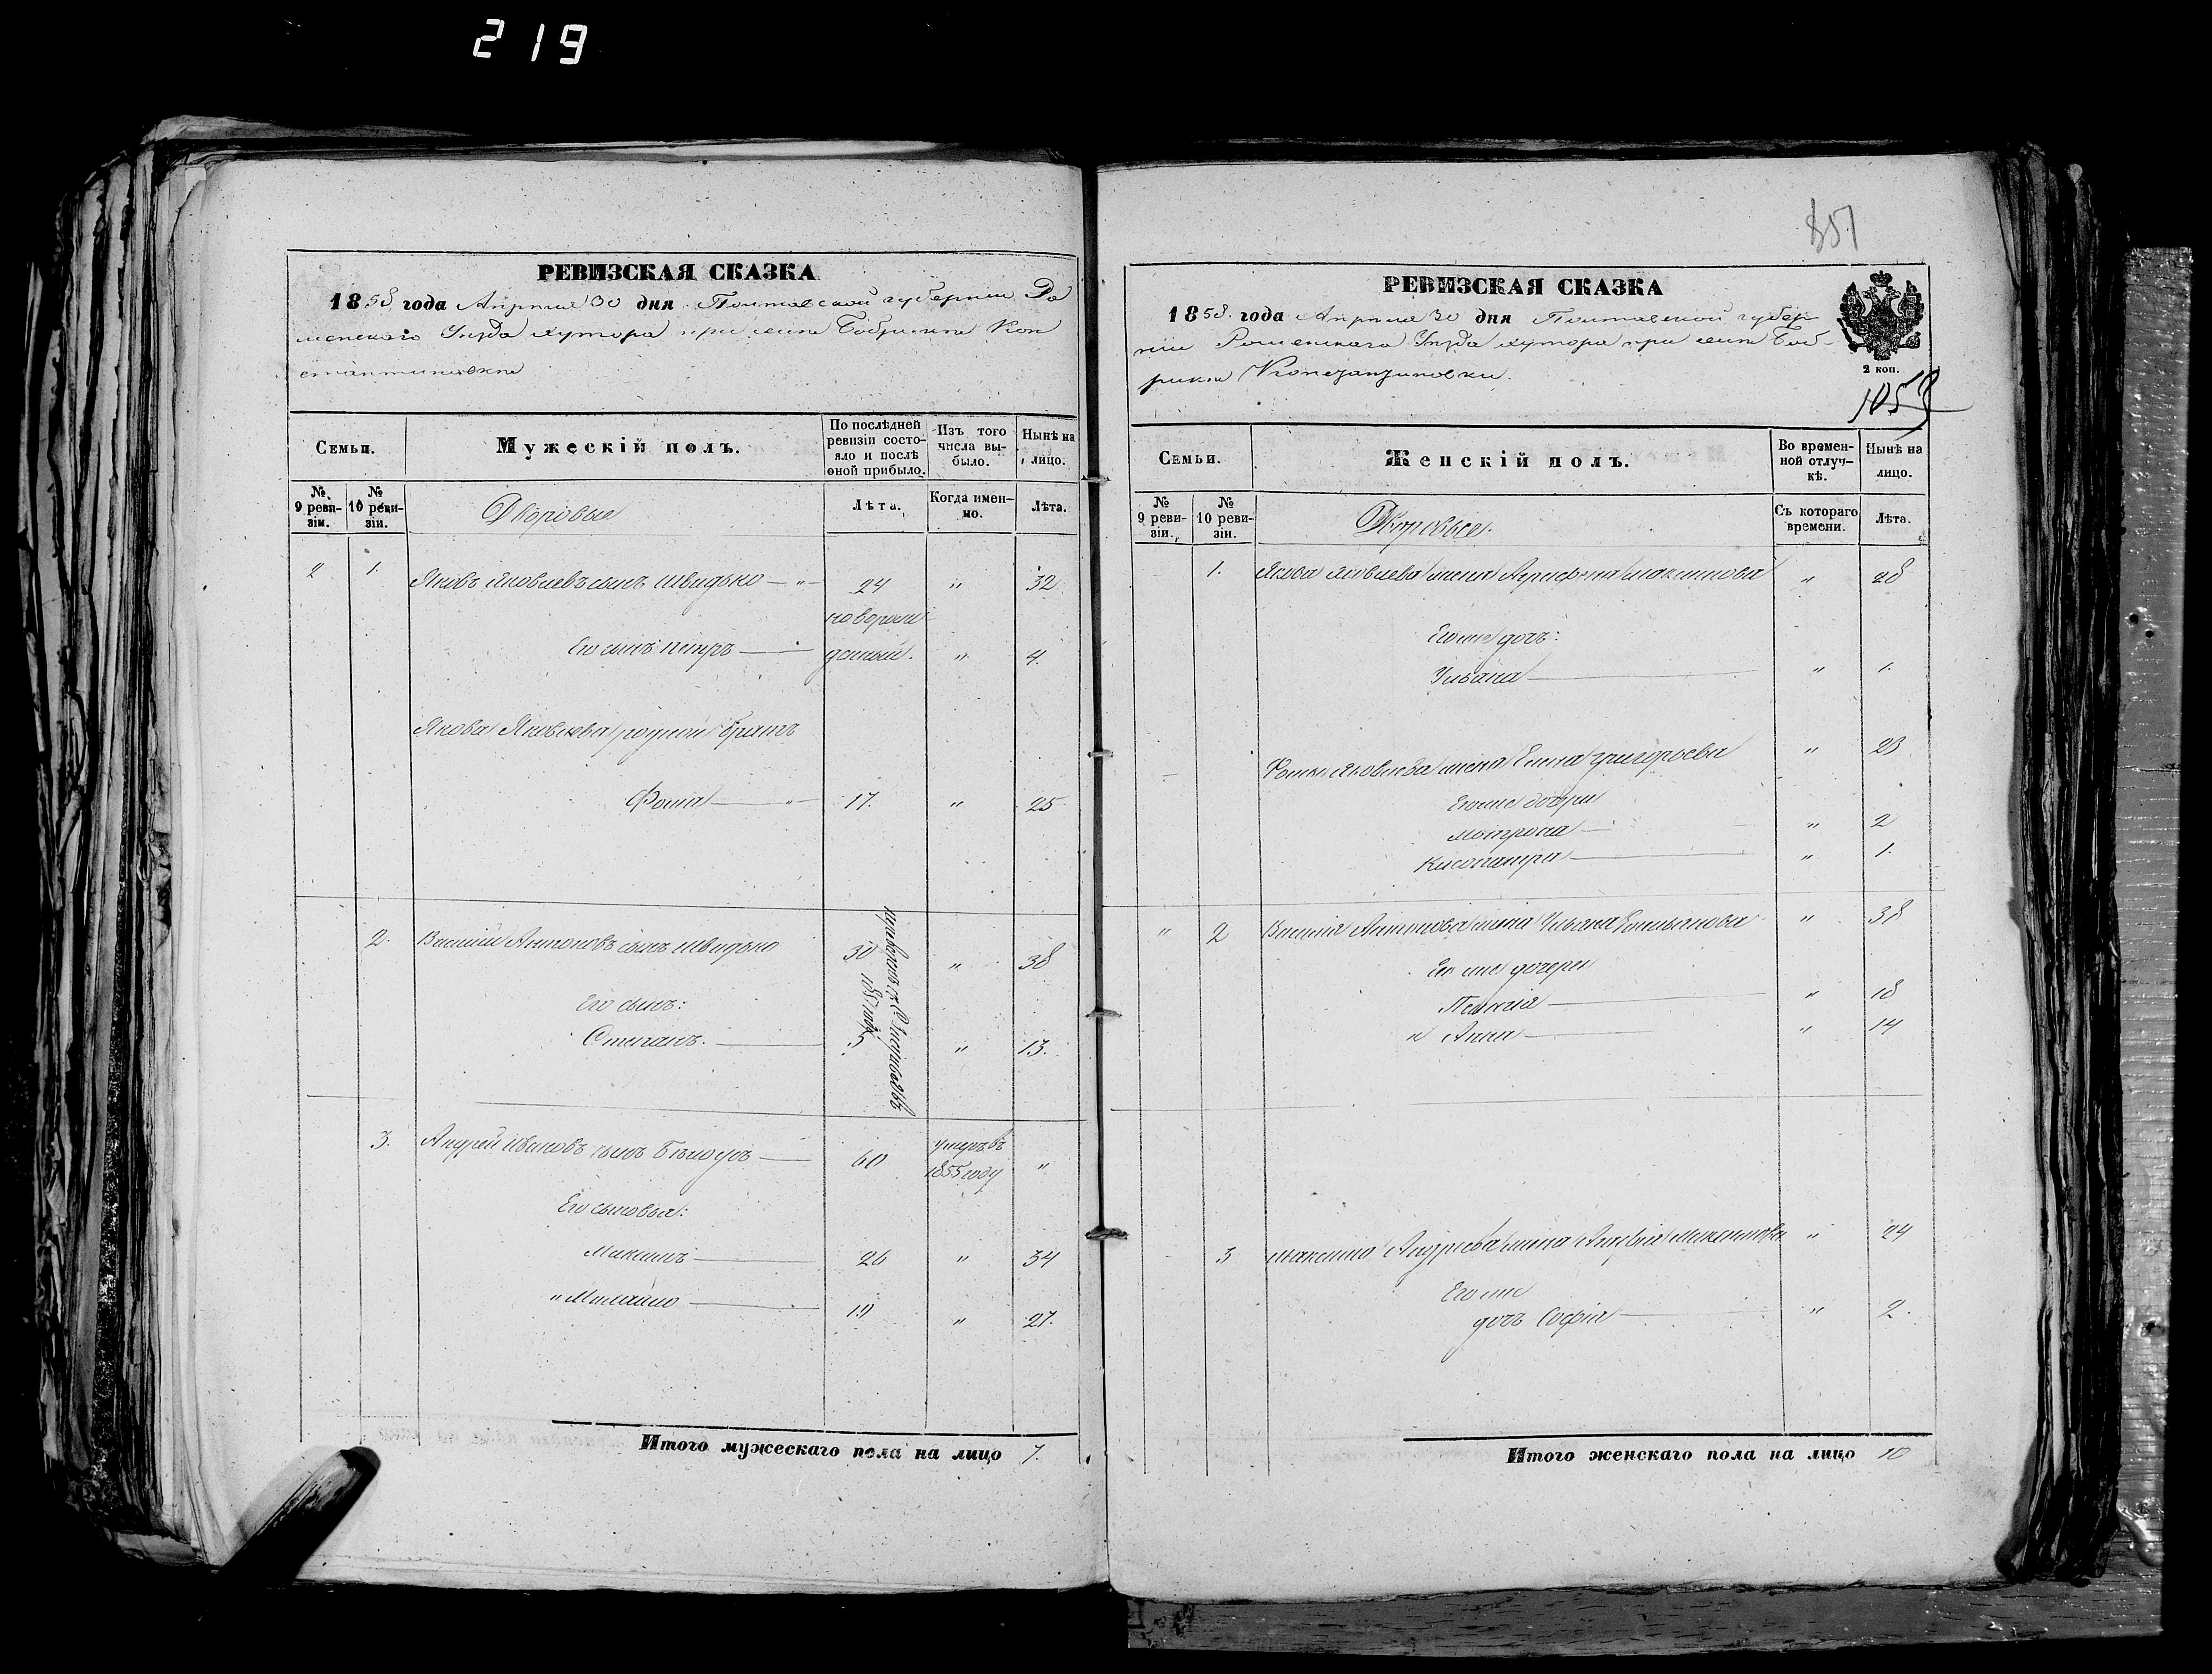 219
РЕВИЗСКАЯ СКАЗКА
1858 года Апреля 30 дня Полтавской губернии Ро
менского Уезда хутора при селе Бобрике Кон
стантиновки
Семьи.
Мужескій полъ.
По послѣдней ревизіи состояло и послѣ оной прибыло.
Изъ того числа выбыло.
Нынѣ на лицо.
№ 9 ревизіи.
№ 10 ревизіи.
Дворовые
Лѣта.
Когда именно.
Лѣта.
2 1. Яковъ Яковлевъ сынъ Швидько — " — 24 " 32
новорож
Его сынъ Петръ — денный. " 4.
Якова Яковлева родной братъ
Фома — " — 17. " 25
2. Василий Антоновъ сынъ Швидько 30 " 38
Его сынъ:
Степанъ. — 5 " 13.
1857 года
3. Андрей Ивановъ сынъ — 60 умеръ въ 1855 году "
Его сыновья:
Максимъ — 26 " 34
" Михайло — 19 " 27.
Итого мужескаго пола на лицо 7.
857
РЕВИЗСКАЯ СКАЗКА
1858 года Апреля 30 дня Полтавской губер
нии Роменского Уезда хутора при селе Боб-
рике Константиновки.
2 коп.
1053
Семьи.
Женскій полъ.
Во временной отлучкѣ.
Нынѣ на лицо.
№ 9 ревизіи.
№ 10 ревизіи.
Дворовые.
Съ котораго времени.
Лѣта.
1. Якова Яковлева жена Агрифена Максимова " 28
Его же дочь:
Ульяна — " 1.
Фомы Яковлева жена Елена Григорьева " 23
Его же дочери
Мотрона — " 2
Клеопатра — " 1.
" 2 Василия Антонова жена Ульяна Емельянова " 38
Его же дочери
Пелагія — " 18
и Анна — " 14
3 Максима Андреева жена Максимова " 24
Его же
дочь Софія — " 2.
Итого женскаго пола на лицо 10